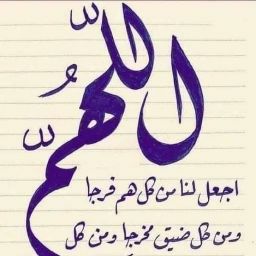 اللهمّ
اجعل لنا من كل هم فرجا
ومن كل ضيق مخرجا ومن كل